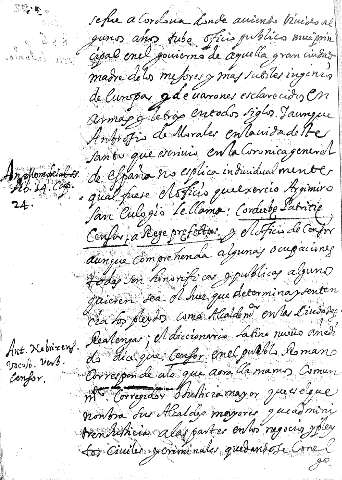 se fue a Cordova donde aviendo vivido al
gunos años tubo oficio publico mui prin
cipal en el govierno de aquella gran ciudad
madre de los mejores y mas subtiles ingenios
de Europa, y de varones esclarecidos en
armas y letras en todos siglos. Y aunque
Ambrosio de Morales en la vida deste
santo que escrivio en la Coronica general
de España no esplica individualmente
qual fuese el oficio que exercio Argimiro
San Eulogio le llama: Cordubę Patricię
Censor, a Rege prefectus, y el oficio de Censor
aunque comprehenda algunas ocupaciones
todas son honorificas y publicas alguno
quieren sea el Juez que determina y senten
cia los pleytos como Alcaldes en las Ciudades
Realengas; el diccionario latino
dice que Censor, en el pueblo Romano
Corresponde a lo que aora llamamos Comun
Corregidor Justicia mayor que es que
nombra sus Alcaldes mayores y que admini
tren Justicia a las partes en los negocios y pley
tos Civiles y criminales quedandose
Ambrosio de Morales
lib. 14. Cap.
24.
Ant. Nebricens.
verb.
Censor.